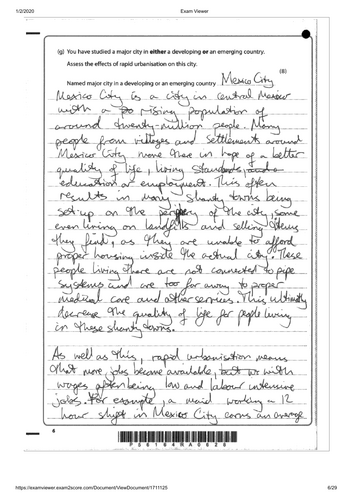 1/2/2020
Exam Viewer
(g) You have studied a major city in either a developing or an emerging country.
Assess the effects of rapid urbanisation on this city.
(8)
Named major city in a developing or an emerging country Mexico City
Mexico City is a city in central Mexico
with a rising population of
around twenty-million people. Many
people from villages and settlements around
Mexico City move there in hope of a better
quality of life, living standards,
education or employment. This often
results in many shanty towns being
set up on the periphery of the city, some
even living on landfills and selling items
they find, as they are unable to afford
proper housing inside the actual city. These
people living there are not connected to pipe
systems and are too far away to proper
medical care and other services. This ultimately
decrease the quality of life for people living
in these shanty towns.
As well as this, rapid urbanisation means
that more jobs become available, but with
wages often being low and labour intensive
jobs. For example, a maid working a 12
hour shift in Mexico City earns an average
6
P56194RA0628
https://examviewer.exam2score.com/Document/ViewDocument/1711125
6/29